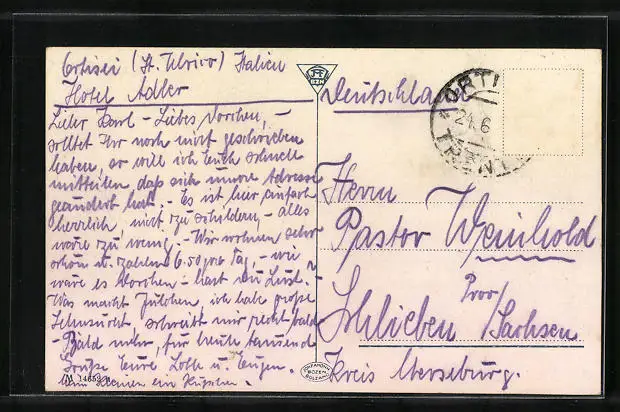 Ortisei (St. Ulrico) Italien
Hotel Adler
Lieber Karl – Liebes Dorchen, –
solltet Ihr noch nicht geschrieben
haben, so will ich Euch schnell
mitteilen, daß sich unsre Adresse
geändert hat. – Es ist hier einfach
herrlich, nicht zu schildern, – alles
wäre zu wenig. – Wir wohnen sehr
schön u. zahlen 6.50 pro Tag, – wie
wäre es Dorchen – hast du Lust. –
Was macht Julchen, ich habe große
Sehnsucht, schreibt mir recht bald
– Bald mehr, für heute tausend
Grüße Eure Lotte u. Eugen.
Dem Kleinen ein Küßchen.
14652
Deutschland
ORTI
24.6
TRENT
Herrn
Pastor Weinhold
Schlieben
Prov/Sachsen
Kreis Merseburg.
BOZEN
BOLZANO